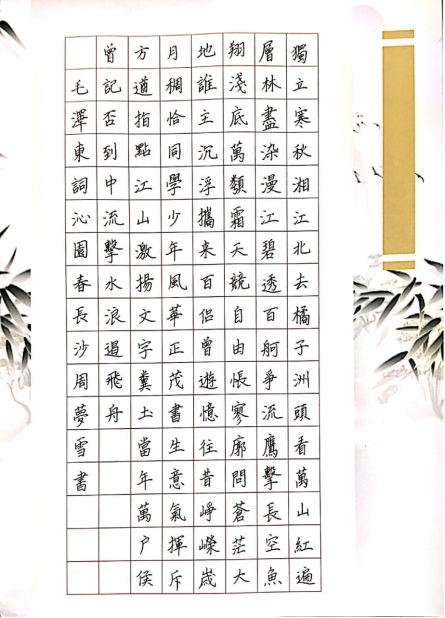 獨立寒秋湘江北去橘子洲頭看萬山紅遍
層林盡染漫江碧透百舸爭流鷹擊長空魚
翔淺底萬類霜天競自由悵寥廓問蒼茫大
地誰主沉浮攜来百侣曾遊憶往昔崢嶸歲
月稠恰同學少年風華正茂書生意氣揮斥
方遒指點江山激揚文字糞土當年萬户侯
曾記否到中流擊水浪遏飛舟
毛澤東詞沁園春長沙周夢雪書